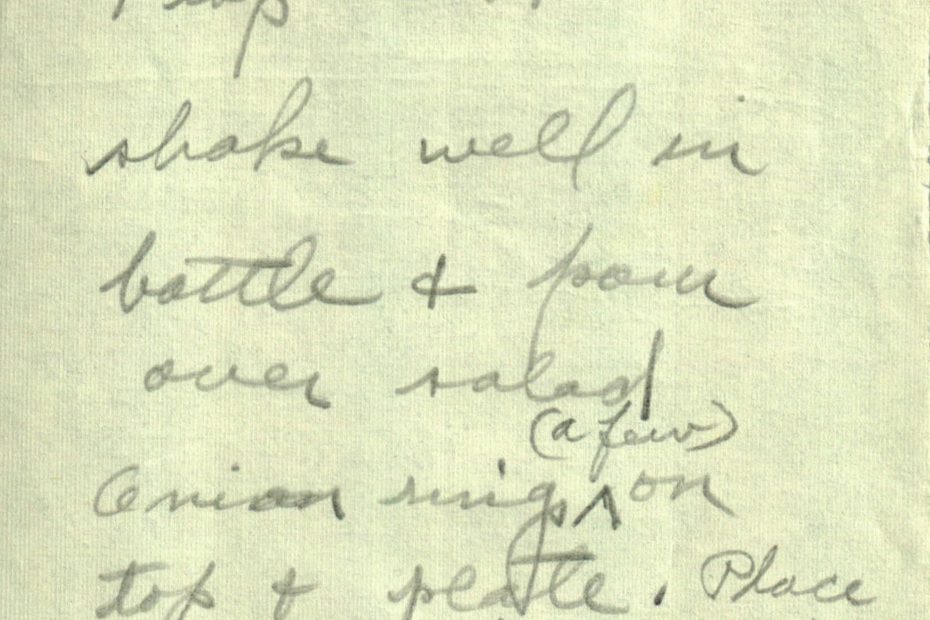 shake well in
bottle & pour
over salad
(a few)
Onion rings ^ on
top & plate. Place